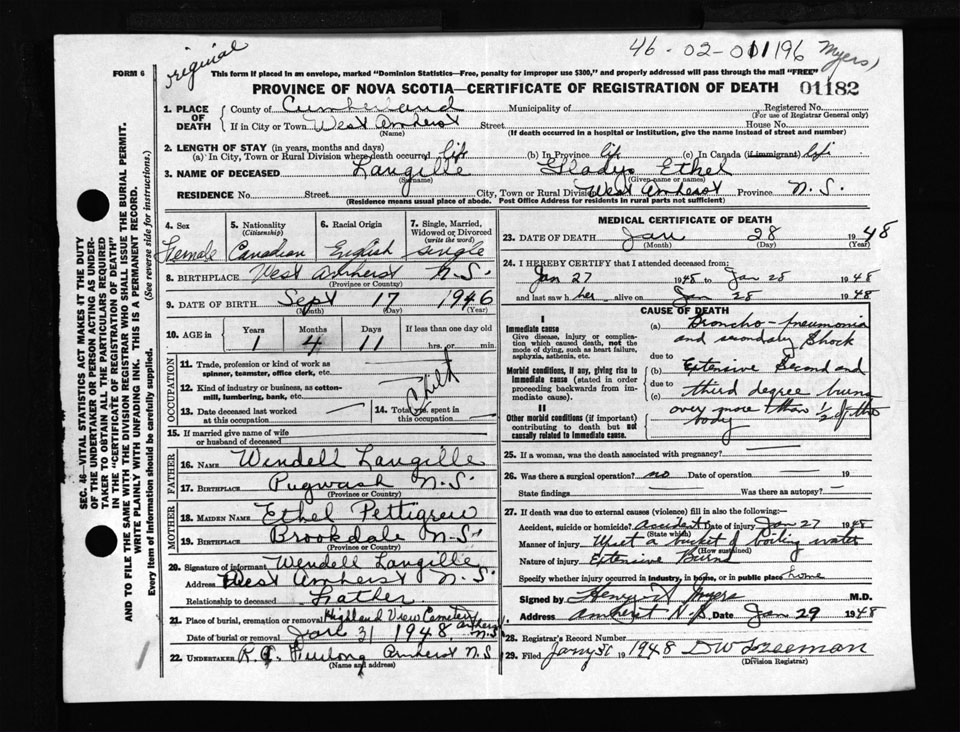 46-02-011196
Myers)
FORM 6
This form if placed in an envelope, marked "Dominion Statistics—Free, penalty for improper use $300," and properly addressed will pass through the mail "FREE"
PROVINCE OF NOVA SCOTIA—CERTIFICATE OF REGISTRATION OF DEATH
01182
1. PLACE OF DEATH
County of Cumberland Municipality of Registered No.
(For use of Registrar General only)
If in City or Town West Amherst Street House No.
(Name) (If death occurred in a hospital or institution, give the name instead of street and number)
2. LENGTH OF STAY (in years, months and days)
(a) In City, Town or Rural Division where death occurred life (b) In Province life (c) In Canada (if immigrant) life
3. NAME OF DECEASED Langille Gladys Ethel
(Surname) (Given name or names)
RESIDENCE No. Street City, Town or Rural Division West Amherst Province N.S.
(Residence means usual place of abode. Post Office Address for residents in rural parts not sufficient)
4. Sex
Female
5. Nationality
(Citizenship)
Canadian
6. Racial Origin
English
7. Single, Married,
Widowed or Divorced
(write the word)
single
8. BIRTHPLACE West Amherst N.S.
(Province or Country)
9. DATE OF BIRTH Sept 17 1946
(Month) (Day) (Year)
10. AGE in Years Months Days If less than one day old
1 4 11 hrs. or min.
OCCUPATION
11. Trade, profession or kind of work as
spinner, teamster, office clerk, etc.
12. Kind of industry or business, as cotton-
mill, lumbering, bank, etc.
Child
13. Date deceased last worked
at this occupation
14. Total yrs. spent in
this occupation
15. If married give name of wife
or husband of deceased
FATHER
16. NAME Wendell Langille
17. BIRTHPLACE Pugwash N.S.
(Province or Country)
MOTHER
18. MAIDEN NAME Ethel Pettigrew
19. BIRTHPLACE Brookdale N.S.
(Province or Country)
20. Signature of informant Wendell Langille
Address West Amherst N.S.
Relationship to deceased Father
21. Place of burial, cremation or removal Highland View Cemetery Amherst N.S.
Date of burial or removal Jan 31 1948
22. UNDERTAKER R. Furlong Amherst N.S
(Name and address)
MEDICAL CERTIFICATE OF DEATH
23. DATE OF DEATH Jan 28 1948
(Month) (Day) (Year)
24. I HEREBY CERTIFY that I attended deceased from:
Jan 27 1948 to Jan 28 1948
and last saw her alive on Jan 28 1948
CAUSE OF DEATH
I
Immediate cause
Give disease, injury or complica-
tion which caused death, not the
mode of dying, such as heart failure,
asphyxia, asthenia, etc.
Morbid conditions, if any, giving rise to
immediate cause (stated in order
proceeding backwards from im-
mediate cause).
II
Other morbid conditions (if important)
contributing to death but not
causally related to immediate cause.
(a) Broncho-pneumonia
and secondary Shock
due to
(b) Extensive Second and
due to
(c) third degree burns
over more than 1/2 of the
body
25. If a woman, was the death associated with pregnancy?
26. Was there a surgical operation? no Date of operation 19
State findings Was there an autopsy?
27. If death was due to external causes (violence) fill in also the following:
Accident, suicide or homicide? accident Date of injury Jan 27 1948
(State which)
Manner of injury Upset a bucket of boiling water
(How sustained)
Nature of injury Extensive Burns
Specify whether injury occurred in industry, in home, or in public place home
Signed by Henry Myers M.D.
Address Amherst N.S. Date Jan 29 1948
28. Registrar's Record Number
29. Filed 1948 DW Freeman
(Division Registrar)
SEC. 46—VITAL STATISTICS ACT MAKES IT THE DUTY
OF THE UNDERTAKER OR PERSON ACTING AS UNDER-
TAKER TO OBTAIN ALL THE PARTICULARS REQUIRED
IN THE "CERTIFICATE OF REGISTRATION OF DEATH"
AND TO FILE THE SAME WITH THE DIVISION REGISTRAR WHO SHALL ISSUE THE BURIAL PERMIT.
WRITE PLAINLY WITH UNFADING INK. THIS IS A PERMANENT RECORD.
Every item of Information should be carefully supplied. (See reverse side for instructions.)